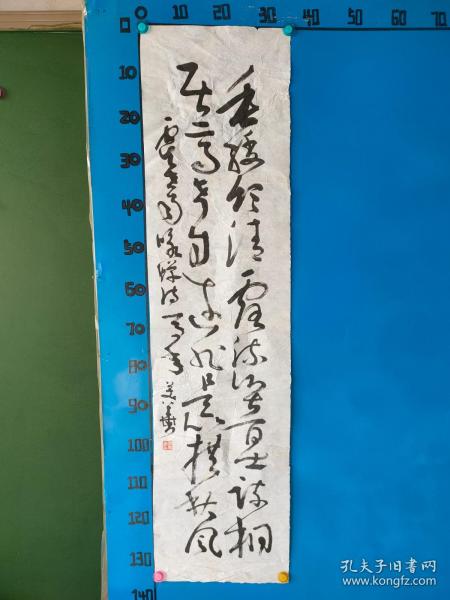 0 10 20 30 40 50 60 70
0
10
20
30
40
50
60
70
80
90
100
110
120
130
140
垂緌饮清露流响出疏桐
居高声自远非是藉秋风
虞世南咏蝉诗一首
孔夫子旧书网
www.kongfz.com